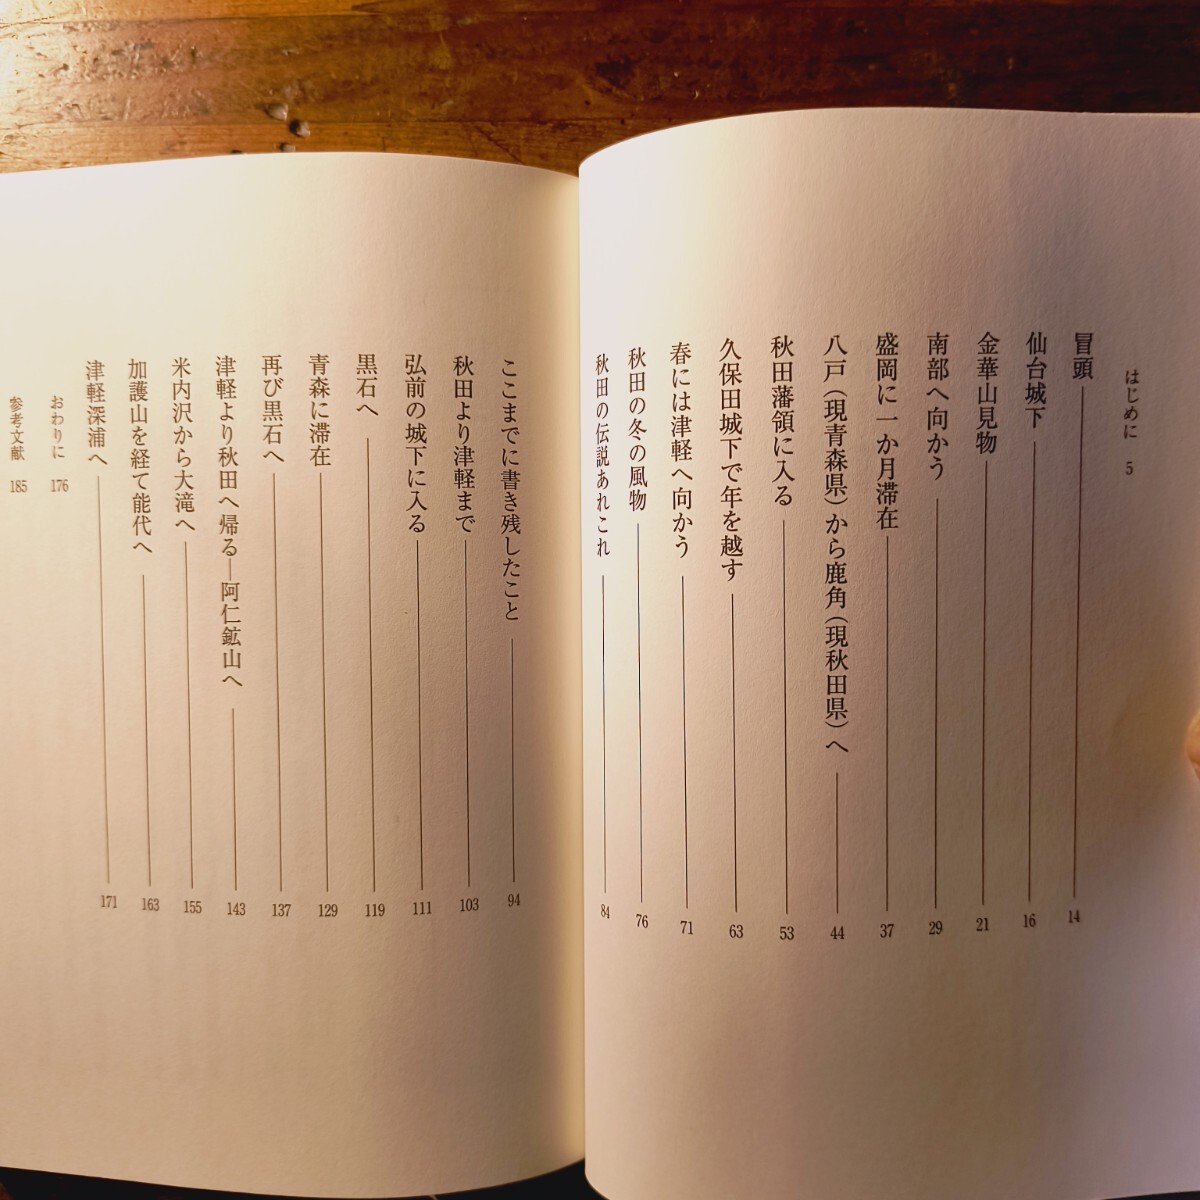 はじめに 5
冒頭 14
仙台城下 16
金華山見物 21
南部へ向かう 29
盛岡に一か月滞在 37
八戸（現青森県）から鹿角（現秋田県）へ 44
秋田藩領に入る 53
久保田城下で年を越す 63
春には津軽へ向かう 71
秋田の冬の風物 76
秋田の伝説あれこれ 84
ここまでに書き残したこと 94
秋田より津軽まで 103
弘前の城下に入る 111
黒石へ 119
青森に滞在 129
再び黒石へ 137
津軽より秋田へ帰る―阿仁鉱山へ 143
米内沢から大滝へ 155
加護山を経て能代へ 163
津軽深浦へ 171
おわりに 176
参考文献 185